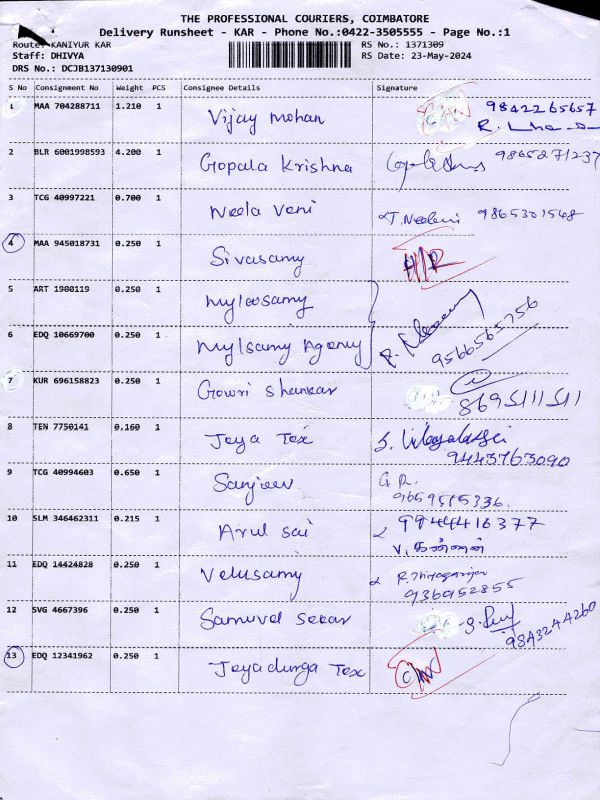 THE PROFESSIONAL COURIERS, COIMBATORE
Delivery Runsheet - KAR - Phone No.:0422-3505555 - Page No.:1
Route: KANIYUR KAR
RS No.: 1371309
Staff: DHIVYA
RS Date: 23-May-2024
DRS No.: DCJB137130901
S No Consignment No Weight PCS Consignee Details Signature
1 MAA 704288711 1.210 1 Vijay mohan 9842265657
2 BLR 6001998593 4.200 1 Gopala Krishna 9865271237
3 TCG 40997221 0.700 1 Neela Veni T. Neelaveni 9865301548
4 MAA 945018731 0.250 1 Sivasamy
5 ART 1900119 0.250 1 Myloosamy
6 EDQ 10669700 0.250 1 Mylsamy Agency 9566565756
7 KUR 696158823 0.250 1 Gowri Shankar 8695111511
8 TEN 7750141 0.160 1 Jeya Tex
9443763090
9 TCG 40994603 0.650 1 Sanjeev G R.
9659515336.
10 SLM 346462311 0.215 1 Arul sai 9944416377
V. கண்ணன்
11 EDQ 14424828 0.250 1 Velusamy
9360952855
12 SVG 4667396 0.250 1 Samuvel Sekar 9843244260
13 EDQ 12341962 0.250 1 Jeyadurga Tex